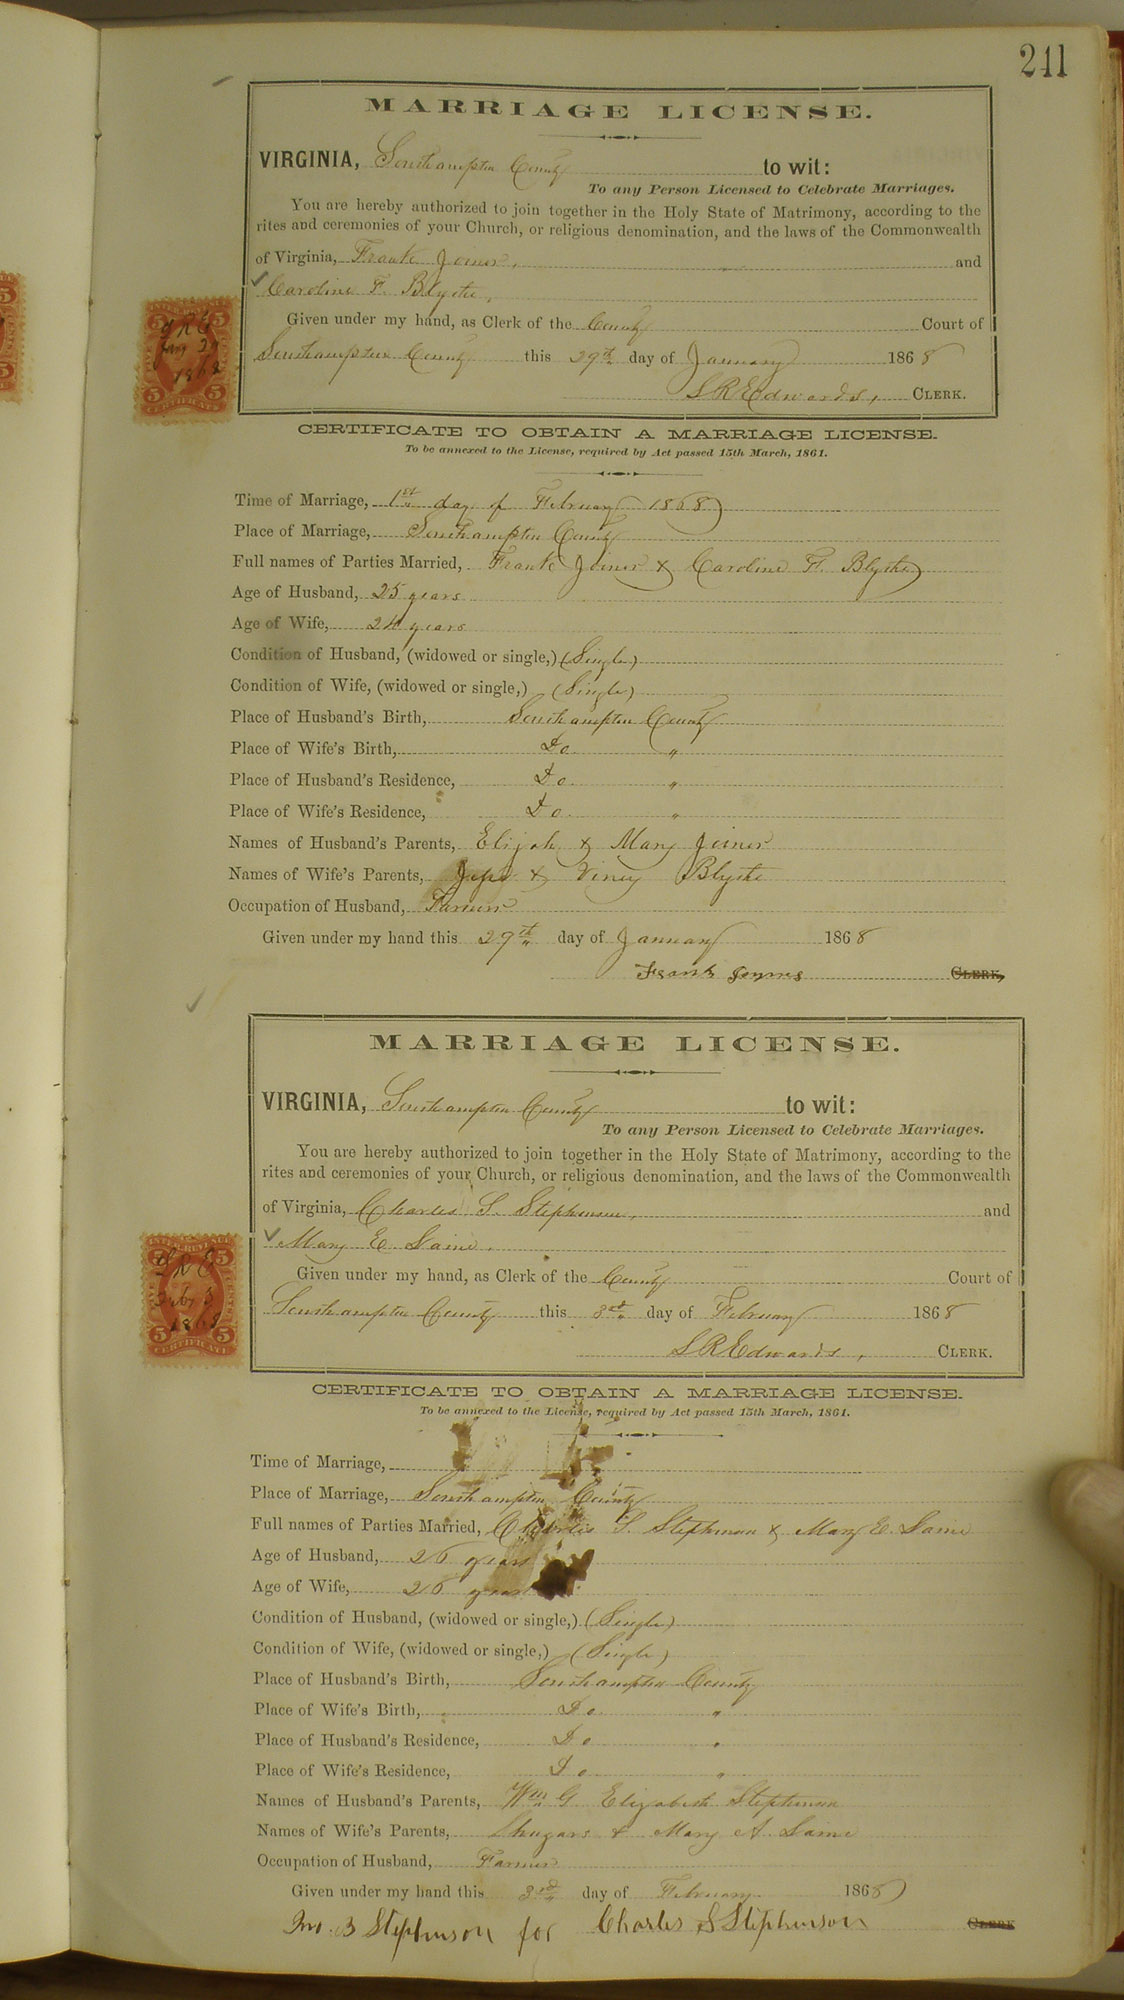 241
MARRIAGE LICENSE.
VIRGINIA, Southampton County to wit:
To any Person Licensed to Celebrate Marriages.
You are hereby authorized to join together in the Holy State of Matrimony, according to the
rites and ceremonies of your Church, or religious denomination, and the laws of the Commonwealth
of Virginia, Frank Joiner, and
Caroline F. Blythe,
Given under my hand, as Clerk of the County Court of
Southampton County this 29th day of January 1868
LREdwards, CLERK.
5 5
LRE
Jany 29
1868
5 5
CERTIFICATE
CERTIFICATE TO OBTAIN A MARRIAGE LICENSE.
To be annexed to the License, required by Act passed 15th March, 1861.
Time of Marriage, 1st day of February 1868
Place of Marriage, Southampton County
Full names of Parties Married, Frank Joiner & Caroline F. Blythe
Age of Husband, 25 years
Age of Wife, 24 years
Condition of Husband, (widowed or single,) (Single)
Condition of Wife, (widowed or single,) (Single)
Place of Husband's Birth, Southampton County
Place of Wife's Birth, Do "
Place of Husband's Residence, Do "
Place of Wife's Residence, Do "
Names of Husband's Parents, Elijah & Mary Joiner
Names of Wife's Parents, & Viney Blythe
Occupation of Husband, Farmer
Given under my hand this 29th day of January 1868
Frank CLERK,
MARRIAGE LICENSE.
VIRGINIA, Southampton County to wit:
To any Person Licensed to Celebrate Marriages.
You are hereby authorized to join together in the Holy State of Matrimony, according to the
rites and ceremonies of your Church, or religious denomination, and the laws of the Commonwealth
of Virginia, Charles S. Stephenson, and
Mary E. Laine,
Given under my hand, as Clerk of the County Court of
Southampton County this 3rd day of February 1868
LREdwards, CLERK.
INTER. REVENUE
5 5
LRE
Feby 3
1868
5 5
CERTIFICATE
CERTIFICATE TO OBTAIN A MARRIAGE LICENSE.
To be annexed to the License, required by Act passed 15th March, 1861.
Time of Marriage,
Place of Marriage, Southampton County
Full names of Parties Married, Charles S. Stephenson & Mary E. Laine
Age of Husband, 26 years
Age of Wife, 26 years
Condition of Husband, (widowed or single,) (Single)
Condition of Wife, (widowed or single,) (Single)
Place of Husband's Birth, Southampton County
Place of Wife's Birth, Do "
Place of Husband's Residence, Do "
Place of Wife's Residence, Do "
Names of Husband's Parents, Wm G Elizabeth Stephenson
Names of Wife's Parents, Shugars & Mary A. Laine
Occupation of Husband, Farmer
Given under my hand this 3rd day of February 1868
Jno. B Stephenson for Charles S Stephenson CLERK